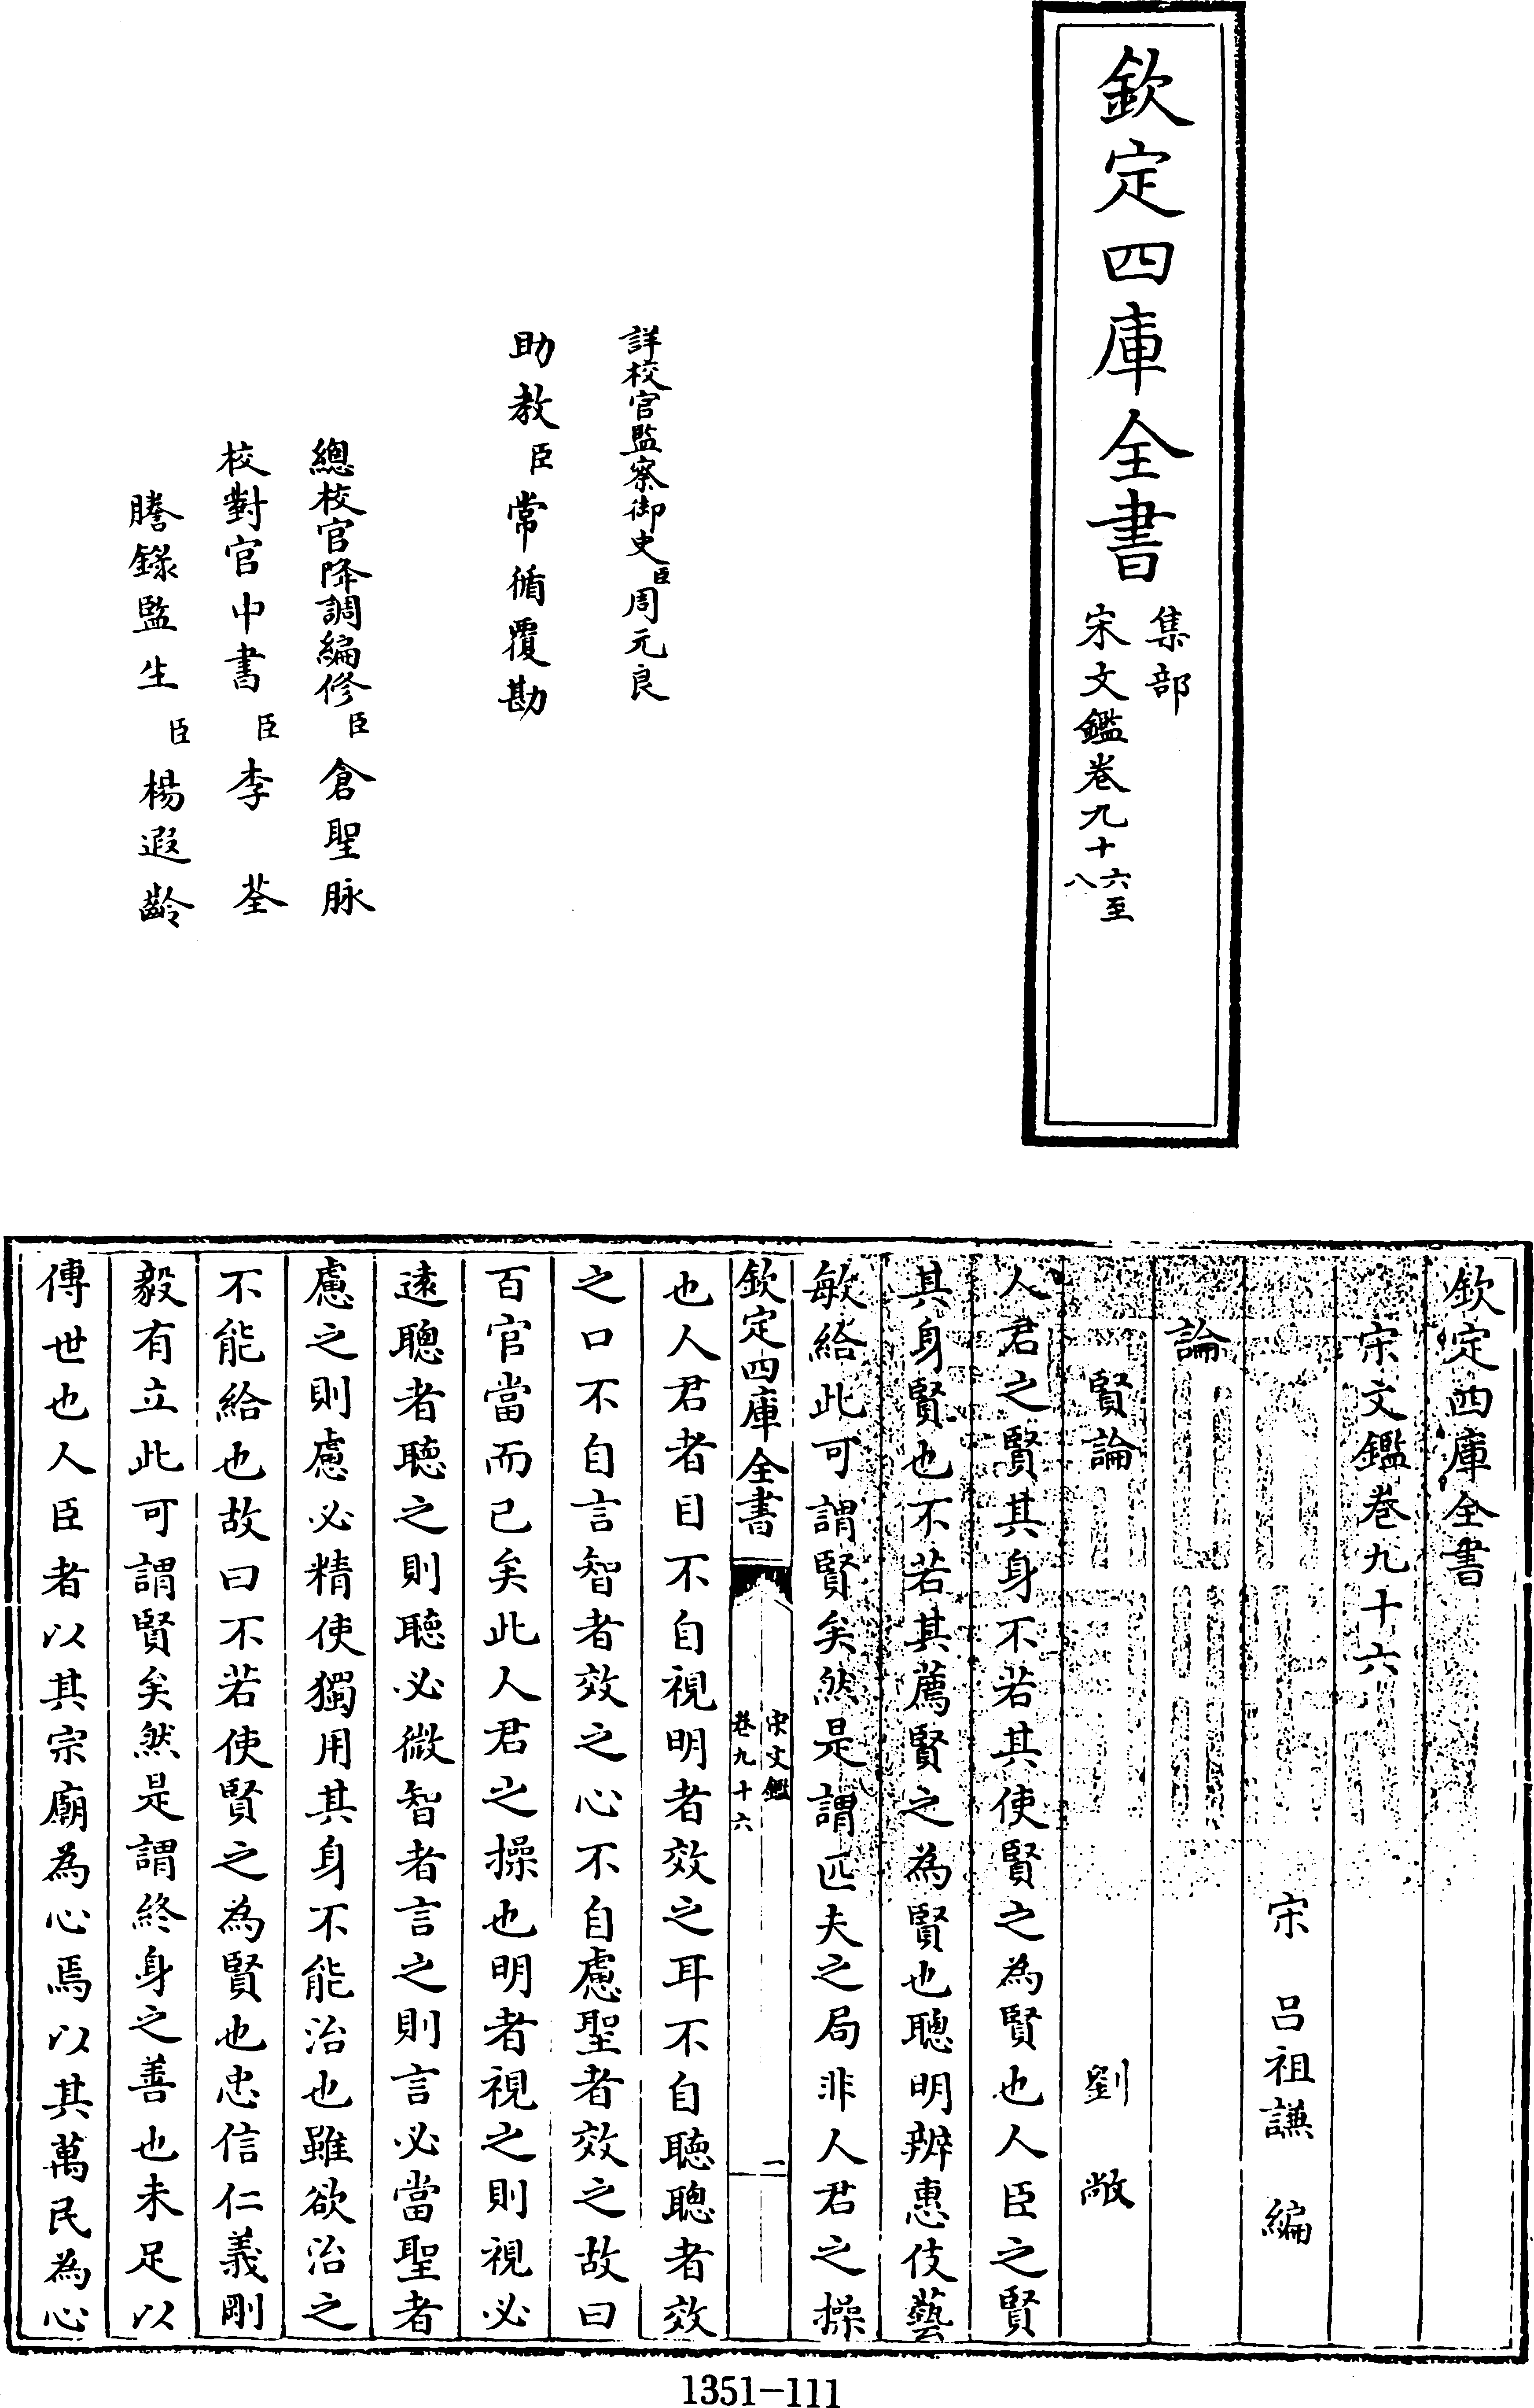 欽定四庫全書
集部
宋文鑑卷九十六至
八
詳校官監察御史臣周元良
助教臣常循覆勘
總校官降調編修臣倉聖脉
校對官中書臣李荃
謄錄監生臣楊遐齡
欽定四庫全書
宋文鑑卷九十六
宋 吕祖謙 編
論
賢論 劉敞
人君之賢其身不若其使賢之為賢也人臣之賢
其身賢也不若其薦賢之為賢也聰明辨惠伎藝
敏給此可謂賢矣然是謂匹夫之局非人君之操
欽定四庫全書
宋文鑑
卷九十六
一
也人君者目不自視明者效之耳不自聽聰者效
之口不自言智者效之心不自慮聖者效之故曰
百官當而已矣此人君之操也明者視之則視必
逺聰者聽之則聽必微智者言之則言必當聖者
慮之則慮必精使獨用其身不能治也雖欲治之
不能給也故曰不若使賢之為賢也忠信仁義剛
毅有立此可謂賢矣然是謂終身之善也未足以
傳世也人臣者以其宗廟為心焉以其萬民為心
1351-111